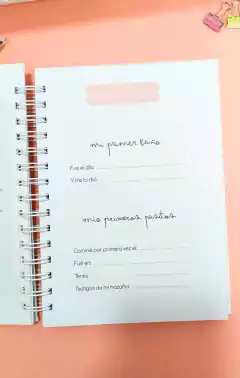 mi primer beso
Fue el día:
Y me lo dió:
mis primeros pasitos
Caminé por primera vez el:
Fue en:
Tenía:
Testigos de mi hazaña: